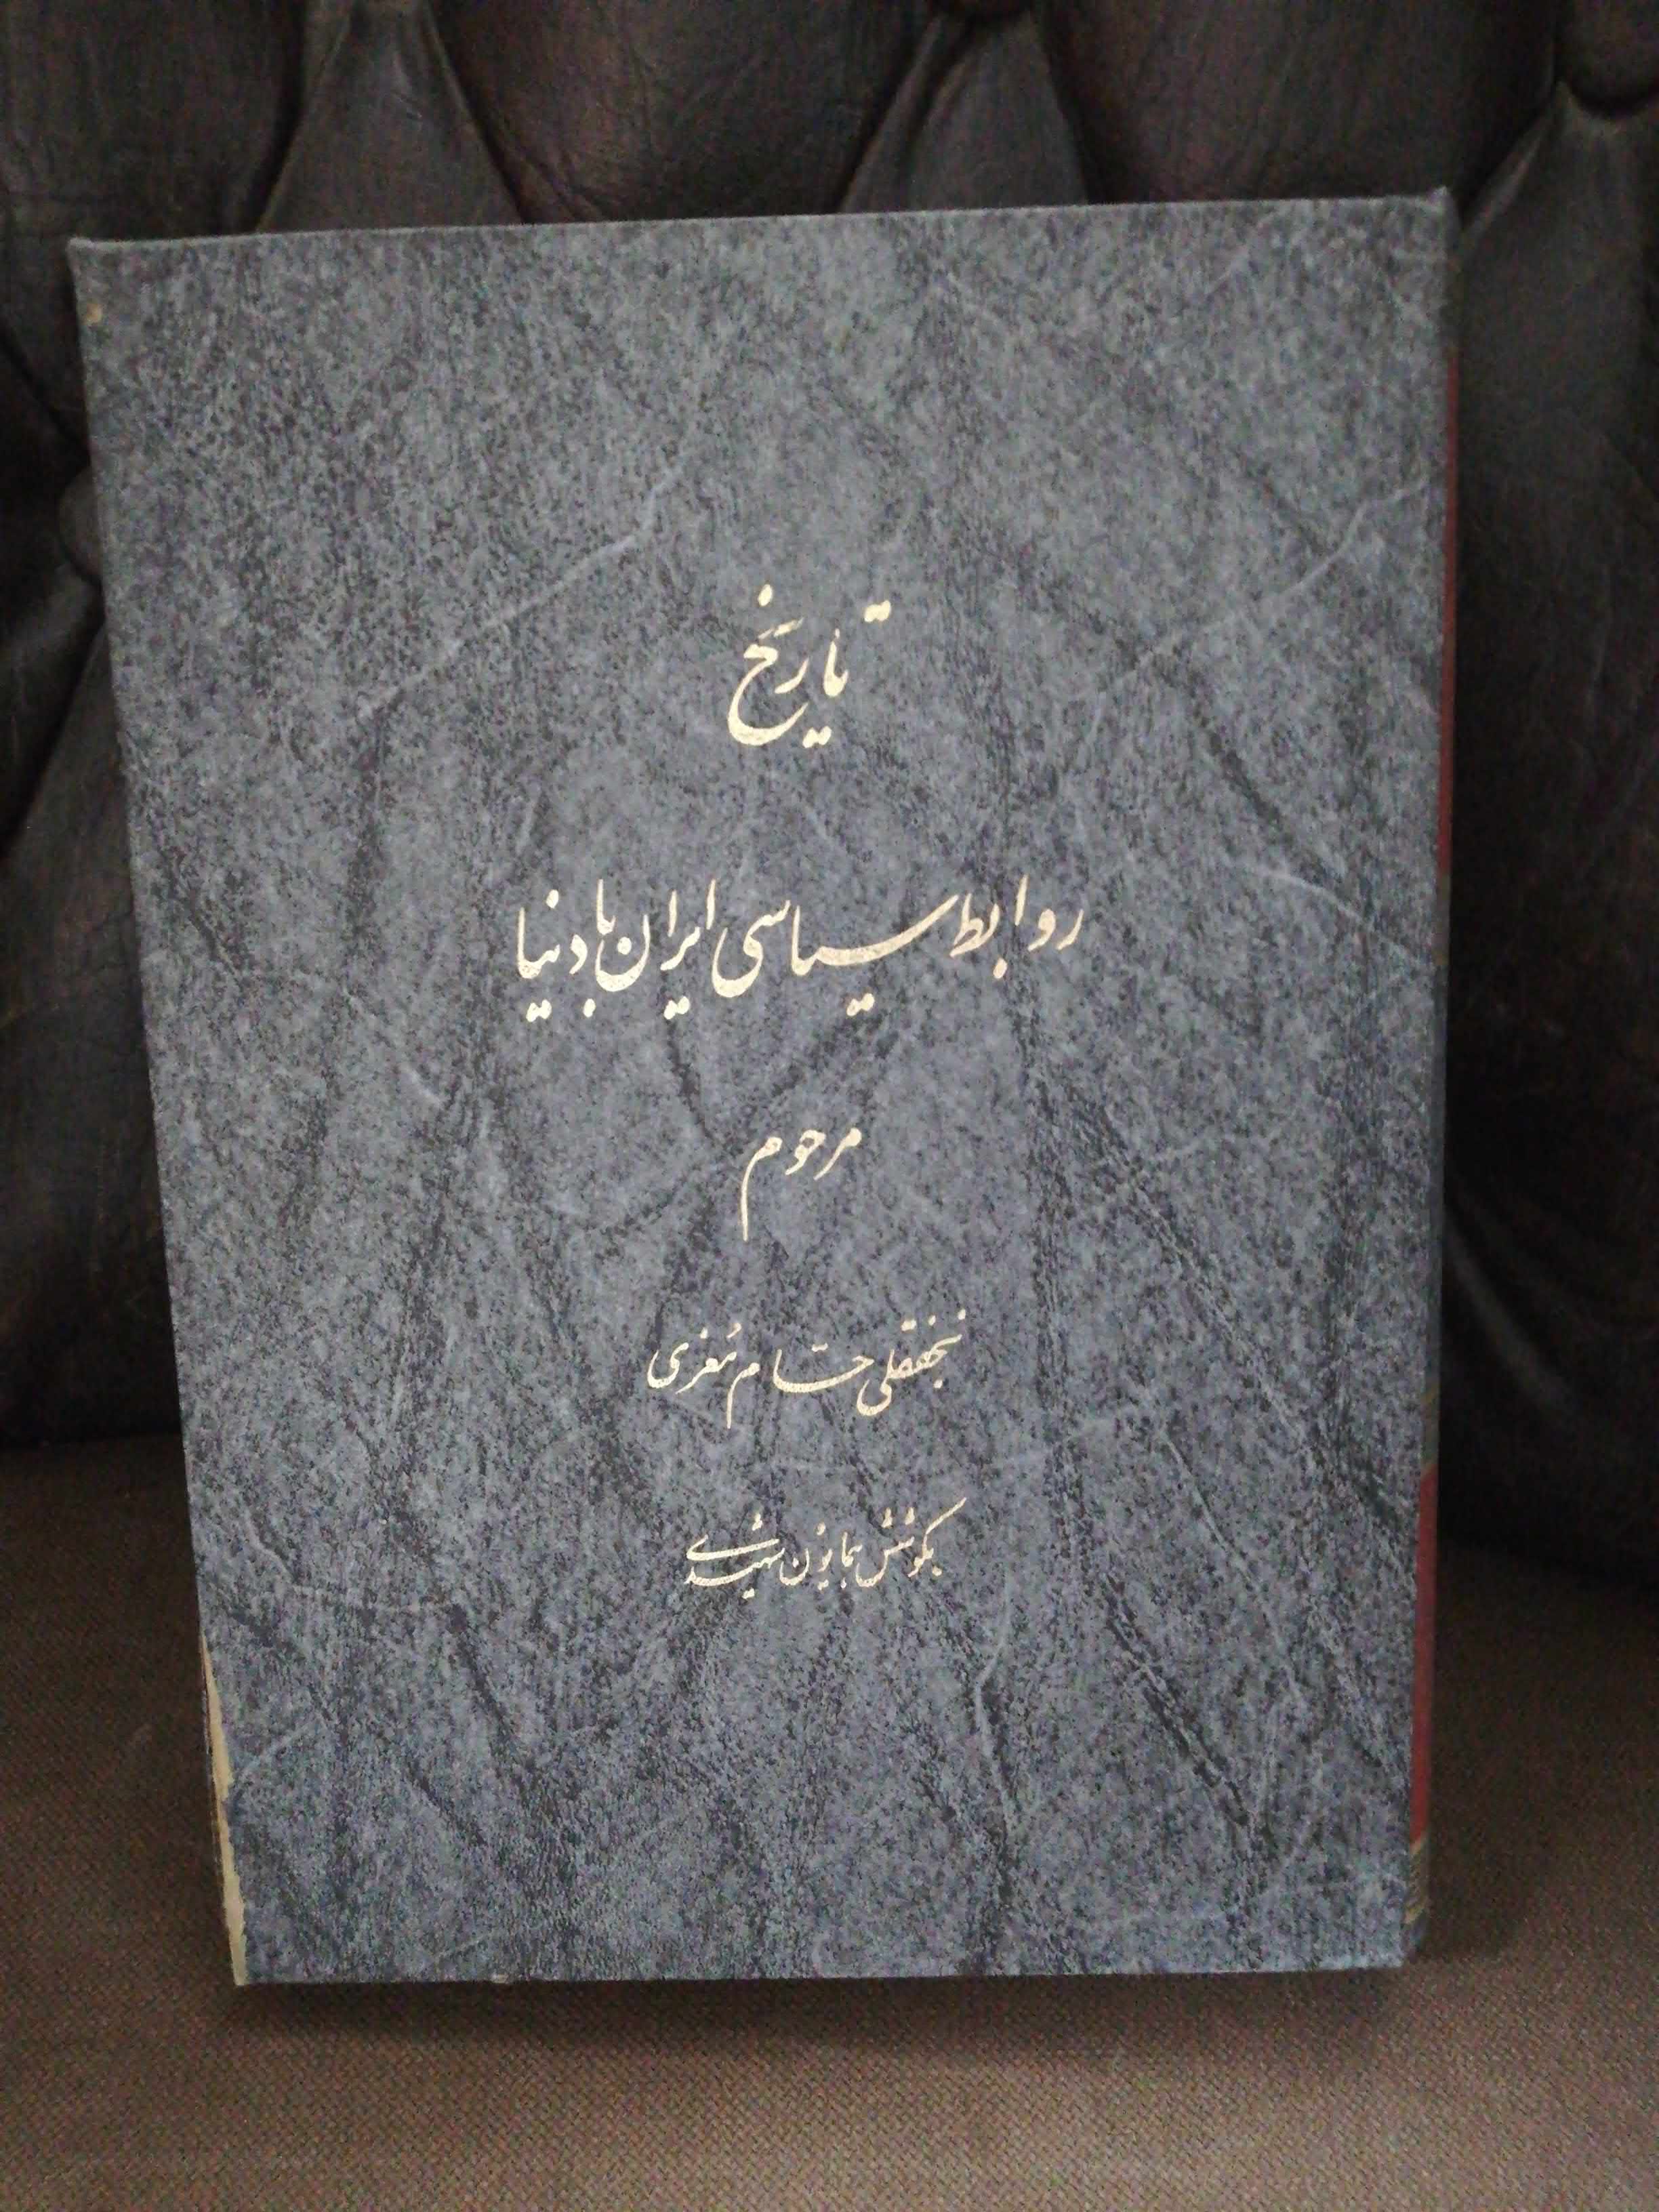 تاریخ
روابط سیاسی ایران با دنیا
مرحوم
نجفقلی حسّام مُعزی
بکوشش همایون شهیدی